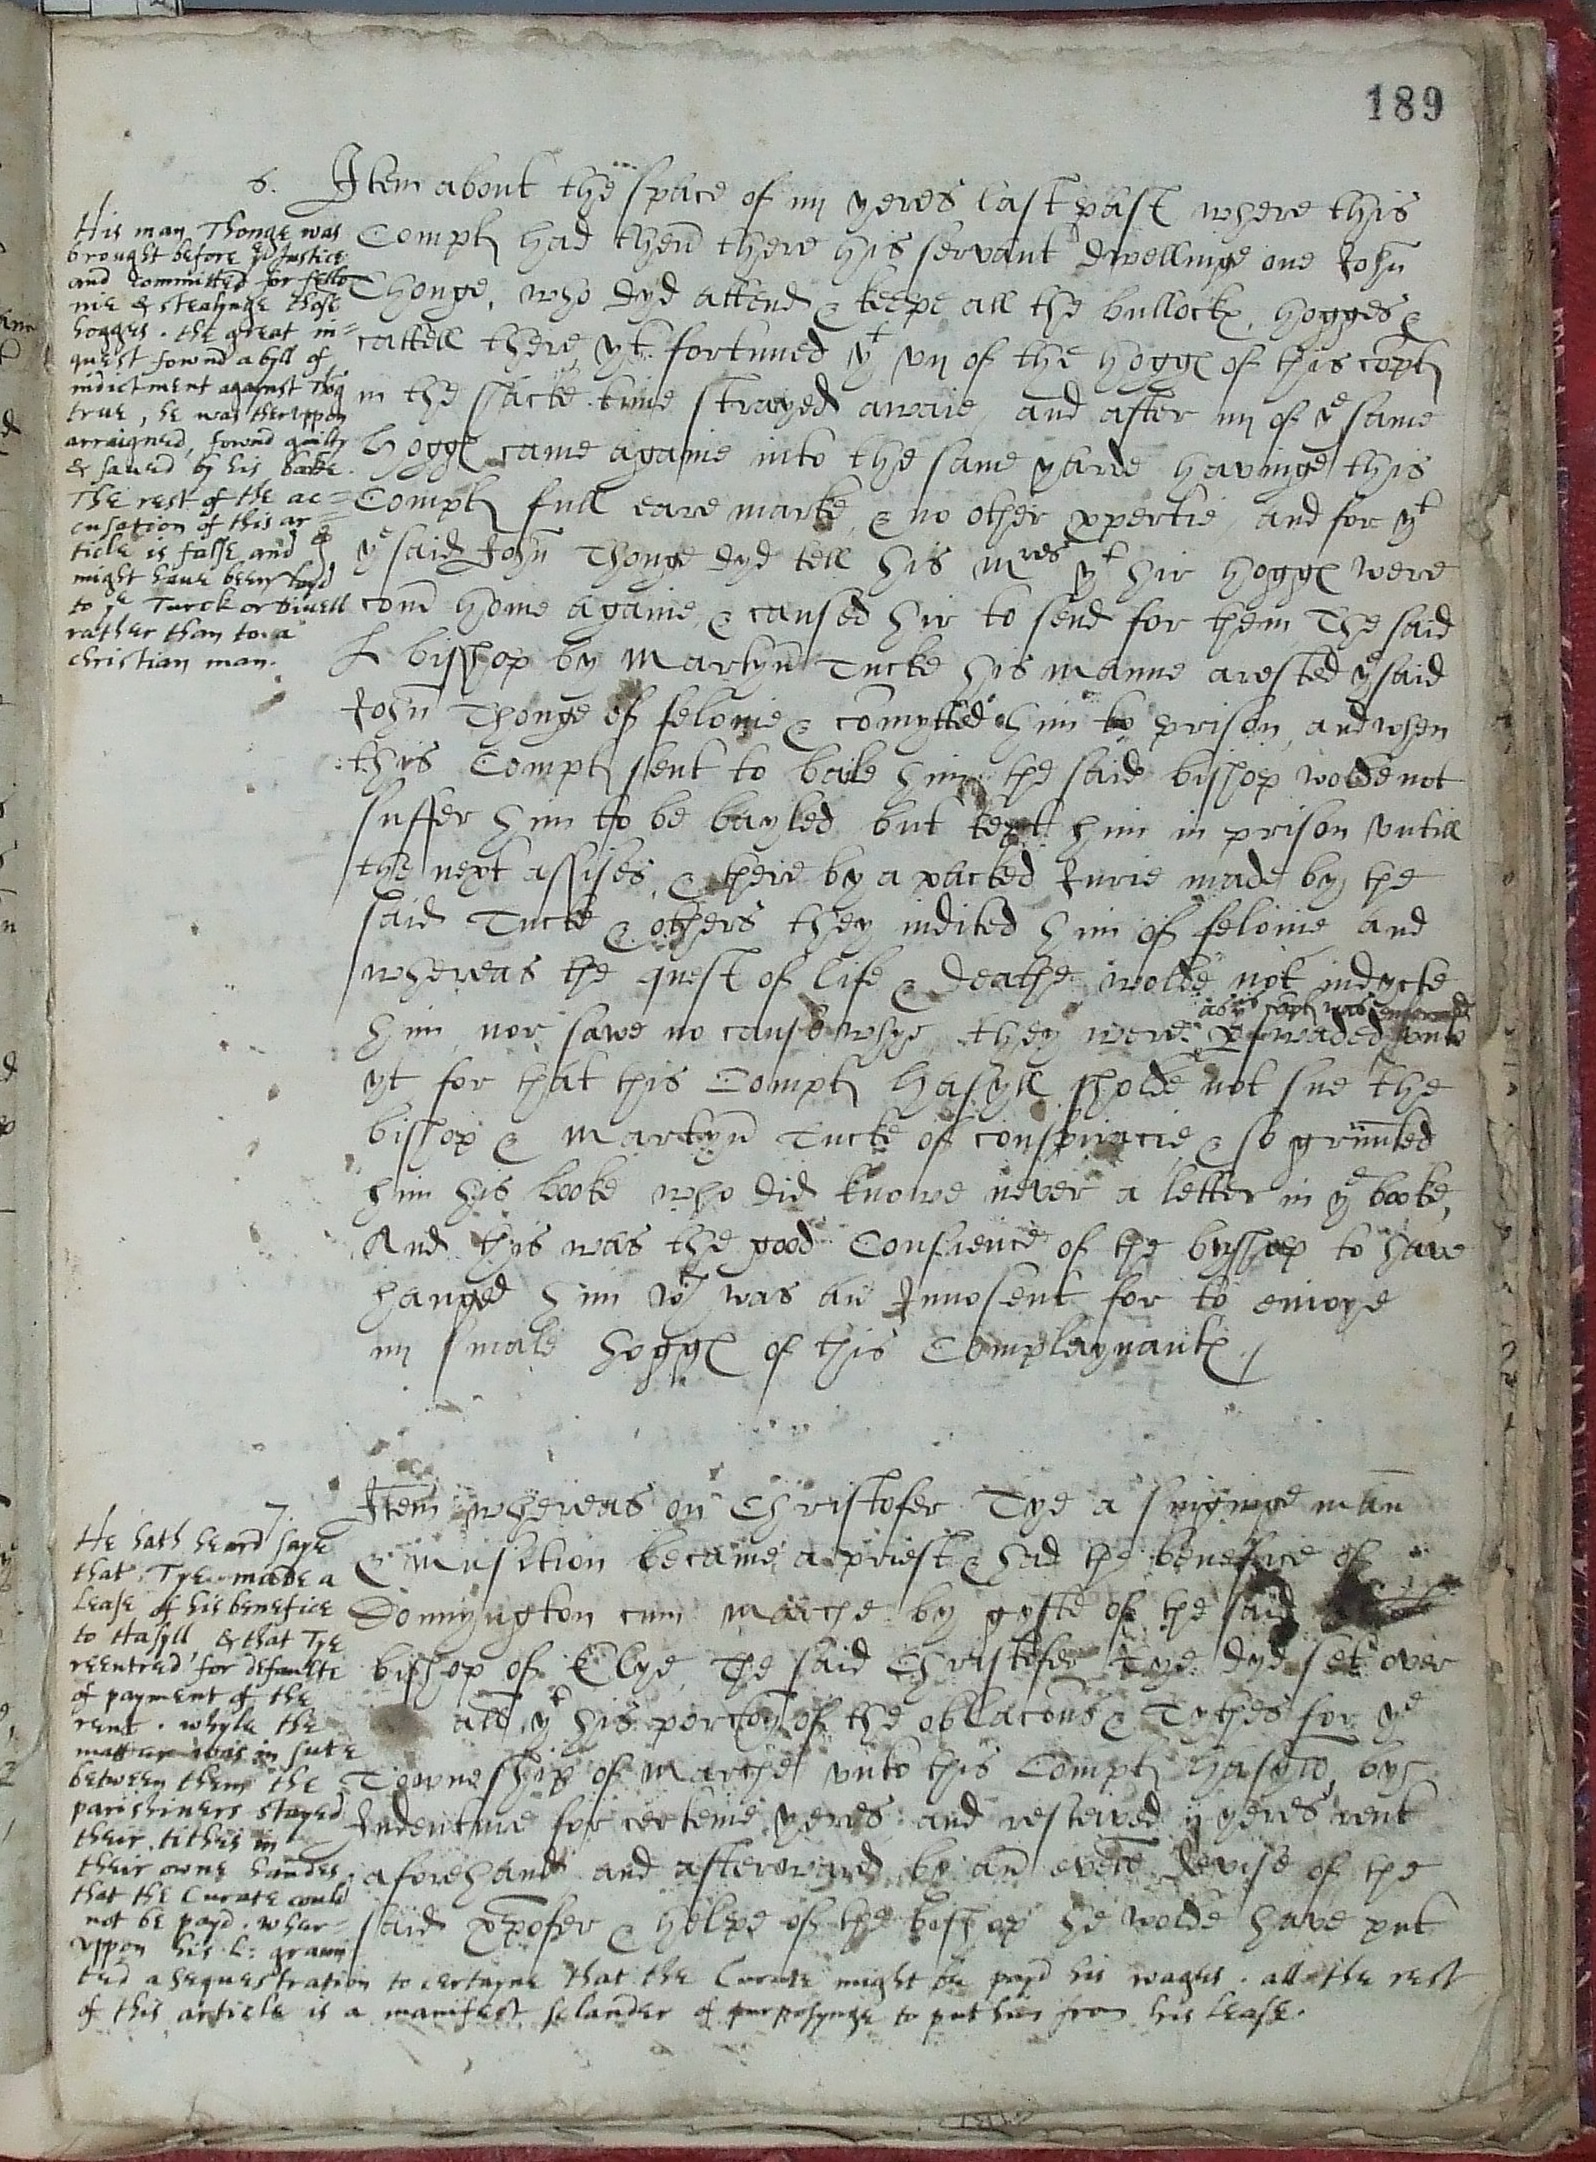 189
6. Item about the space of iiij yeres last past where this
Compl had then there his servant dwellinge one John
Thonge, who dyd attend & kepe all the bullock, hogges &
cattell there, yt fortuned yt vij of the hogg of this compl
in the shacke time strayed awaie, and after iiij of ye same
hogg came againe into the same yarde havinge this
Compl full eare marke, & no other propertie, and for yt
ye said John Thonge dyd tell his Mres yt hir hogg were
com home againe, & caused hir to send for them The said
L bisshop by Martyn Tucke his manne arested ye said
John Thonge of felonie & comytted him to prison, and when
this Compl sent to baile him the said bishop wolde not
suffer him to be bayled but kept him in prison vntill
the next assises, & there by a packed Jurie made by the
said Tucke & others they indited him of felonie and
whereas the quest of life & deathe wolde not indycte
as yis compl was enformed
him, nor sawe no cause whye, they were perswaded vnto
yt for that this Compl Hasyll sholde not sue the
bishop & Martyn Tucke of conspiracie & so graunted
him his booke who did knowe never a letter in ye booke,
And this was the good Consience of the bysshop to have
hanged him wch was an Innosent for to enioye
iiij smale hogg of this Complaynant
His man Thonge was
brought before ye Justice
and committed for fello-
nie & stealynge those
hogges. the great in=
quest fownd a byll of
indictment against Thog
true, he was thervppon
arraigned, fownd guilty
& saued by his booke.
The rest of the ac=
cusation of this ar=
ticle is false and
might haue been layd
to ye Turck or Divell
rather than to a
christian man.
7. Item whereas on Christofer Tye a singinge man
& Musition became a priest & had the benefice of
Donnyngton cum Marche by gyfte of the said
bishop of Elye, The said Christofer Tye dyd set over
all yt his porcon of the oblacons & Tythes for ye
Towneship of Marche vnto this Compl Hasyll, by
Indenture for certeine yeres and resceived ij yeres rent
aforehand and afterward by an evell devise of the
said Xpofer & helpe of the bishop he wolde have put
He hath heard saye
that Tye made a
Lease of his benefice
to Hasyll, & that Tye
reentred for defaulte
of payment of the
rent. whyle the
matter was in sute
between them the
parishiners stayed
their tithes in
their owne handes
that the Curate could
not be payd. wher=
vppon his L: graun
ted a sequestration to certayne that the Curate might be payd his wages. all the rest
of this article is a manifest sclander of purposynge to put him from his Lease.